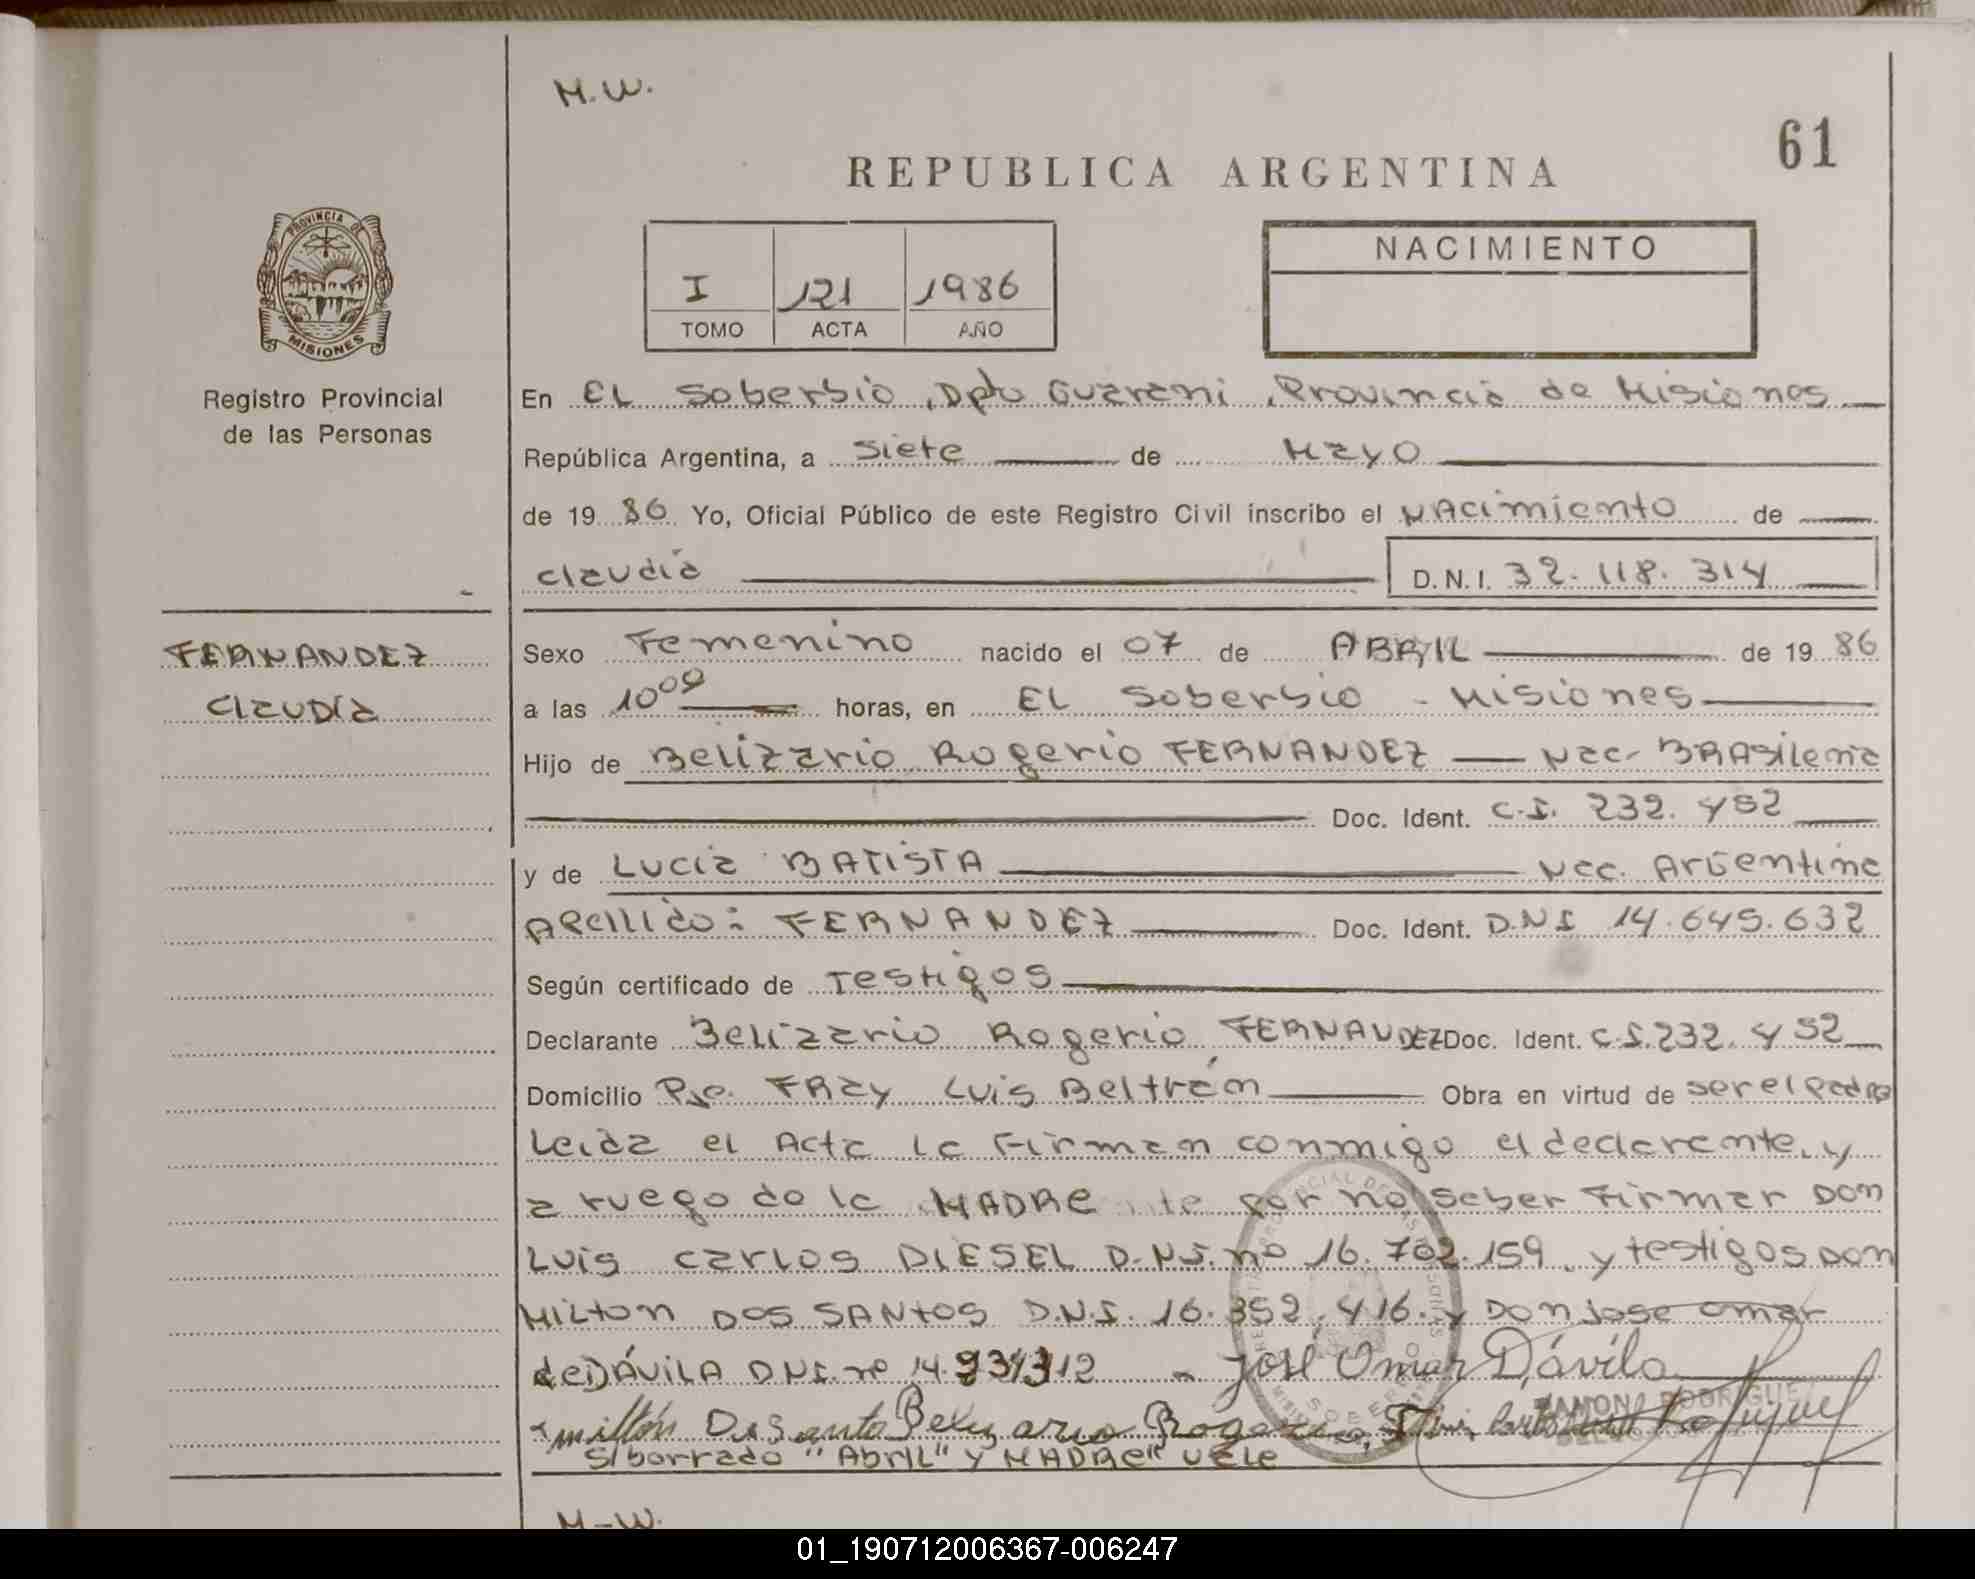 M.W.
61
REPUBLICA ARGENTINA
PROVINCIA DE
MISIONES
Registro Provincial
de las Personas
I 121 1986
TOMO ACTA AÑO
NACIMIENTO
En EL Soberbio, Dpto Guarani, Provincia de Misiones
República Argentina, a siete de Mayo
de 19 86 Yo, Oficial Público de este Registro Civil inscribo el NAcimiento de
Claudia D.N.I. 32.118.314
FERNANDEZ
ClaudIa
Sexo Femenino nacido el 07 de ABRIL de 19 86
a las 10⁰⁰ horas, en EL Soberbio - Misiones
Hijo de Belizario Rogerio FERNANDEZ Nac. BRAsileña
Doc. Ident. C.I. 232.452
y de Lucia BATISTA Nac. Argentina
Apellido: FERNANDEZ Doc. Ident. D.N.I 14.645.632
Según certificado de Testigos
Declarante Belizario Rogerio FERNANDEZ Doc. Ident. C.I. 232.452
Domicilio Pje. FRay Luis Beltrán Obra en virtud de ser el padre
Leida el Acta la Firman conmigo el declarante, y
a ruego de la MADRE por no saber Firmar Don
Luis Carlos DIESEL D.N.I. nº 16.702.159, y testigos Don
Milton DOS SANTOS D.N.I. 16.352.416. y Don Jose Omar
de DÁVILA D.N.I. nº 14.
José Omar Dávila
milton
S/borrado "AbrIL" y MADRE" Vale
M-W.
01_190712006367-006247